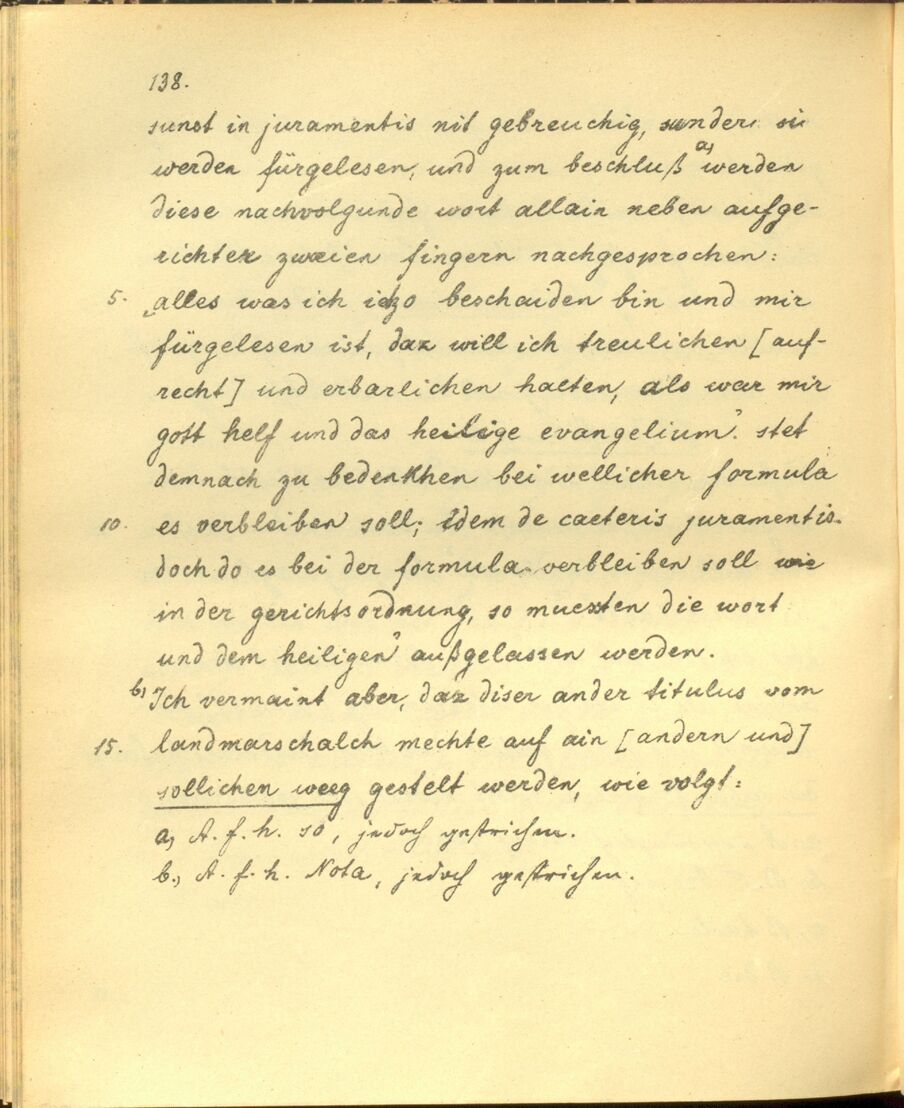 138.
sunst in juramentis nit gebreuchig, sunder si
werden fürgelesen, und zum beschluß a) werden
diese nachvolgunde wort allain neben aufge-
richter zweien fingern nachgesprochen:
5. „alles was ich ietzo beschaiden bin und mir
fürgelesen ist, daz will ich treulichen [auf-
recht] und erbarlichen halten, als war mir
gott helf und das heilige evangelium". stet
demnach zu bedenkhen bei wellicher formula
10. es verbleiben soll; idem de caeteris juramentis.
doch do es bei der formula verbleiben soll wie
in der gerichtsordnung, so muessten die wort
und dem heiligen" außgelassen werden.
b) Ich vermaint aber, daz diser ander titulus vom
15. landmarschalch mechte auf ain [andern und]
sollichen weeg gestelt werden, wie volgt:
a) A. f. h. so, jedoch gestrichen.
b.) A. f. h. Nota, jedoch gestrichen.